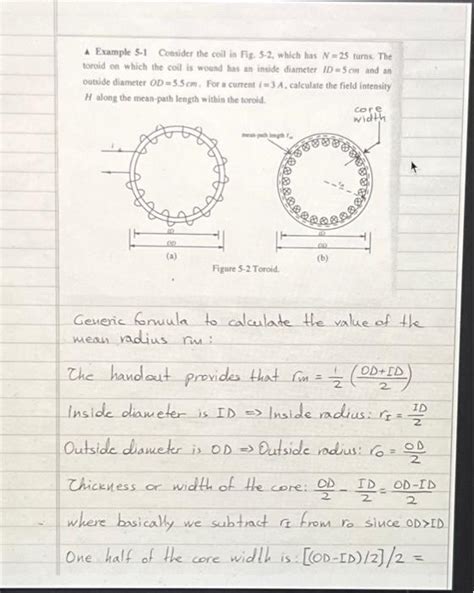 ▲ Example 5-1 Consider the coil in Fig. 5-2, which has N = 25 turns. The
toroid on which the coil is wound has an inside diameter ID = 5 cm and an
outside diameter OD = 5.5 cm. For a current i = 3 A, calculate the field intensity
H along the mean-path length within the toroid.
core
width
mean-path length
i
rm
ID
OD
(a)
ID
OD
(b)
Figure 5-2 Toroid.
Generic formula to calculate the value of the
mean radius rm:
The handout provides that rm = 1/2 (OD+ID/2)
Inside diameter is ID => Inside radius: rI = ID/2
Outside diameter is OD => Outside radius: ro = OD/2
Thickness or width of the core: OD/2 - ID/2 = OD-ID/2
where basically we subtract rI from ro since OD>ID
One half of the core width is: [(OD-ID)/2]/2 =